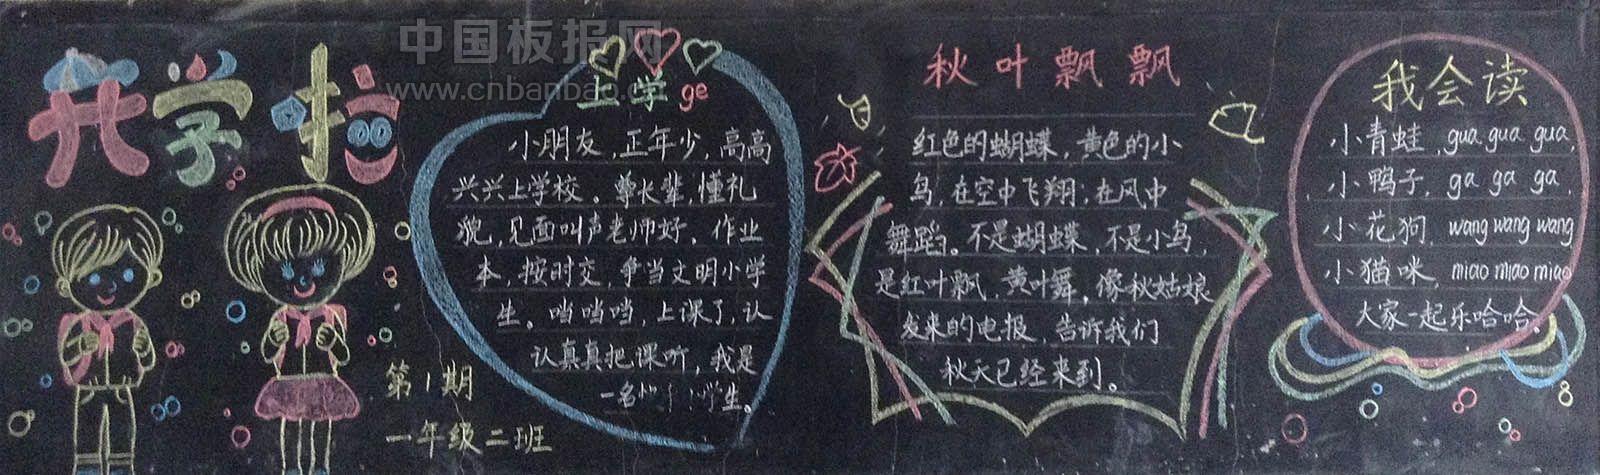 中国板报网
www.cnbanbao.c
开学啦
第1期
一年级二班
上学ge
小朋友，正年少，高高
兴兴上学校。尊长辈，懂礼
貌，见面叫声老师好。作业
本，按时交，争当文明小学
生。当当当，上课了，认
认真真把课听，我是
一名 学生。
秋叶飘飘
红色的蝴蝶，黄色的小
鸟，在空中飞翔；在风中
舞蹈。不是蝴蝶，不是小鸟，
是红叶飘，黄叶舞。像秋姑娘
发来的电报，告诉我们
秋天已经来到。
我会读
小青蛙，gua gua gua，
小鸭子，ga ga ga，
小花狗，wang wang wang
小猫咪，miao miao miao
大家一起乐哈哈。